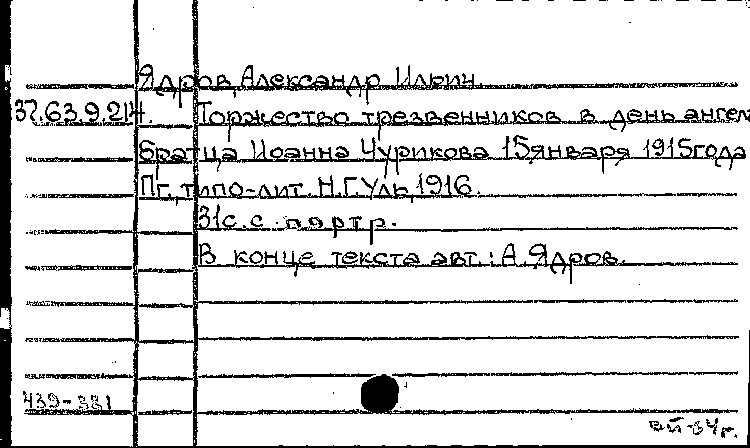 Ядров, Александр Ильич.
37.63.9.214. Торжество трезвенников в день ангел
братца Иоанна Чурикова 15 января 1915 года
Пг., типо-лит. Н.Г. Уль, 1916.
31 с. с портр.
В конце текста авт.: А. Ядров.
439-381